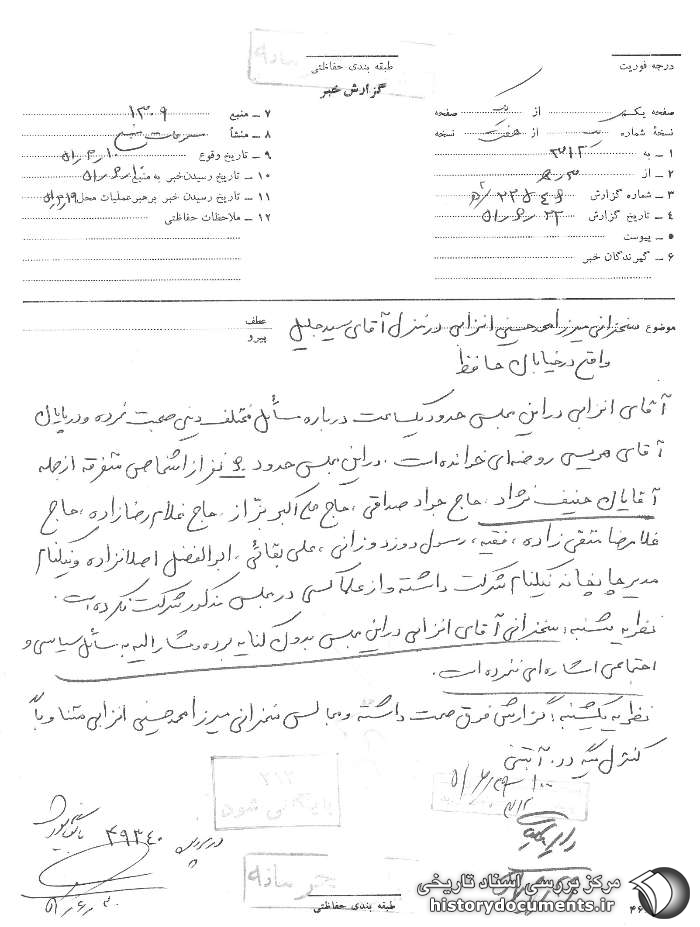 درجه فوریت
طبقه بندی حفاظتی
خبر ساده
گزارش خبر
صفحه یکم از یک صفحه
نسخهٔ شماره یک از هفت نسخه
۱ ـ به ۳۱۲
۲ ـ از
۳ ـ شماره گزارش
۴ ـ تاریخ گزارش
۵ ـ پیوست
۶ ـ گیرندگان خبر
۷ ـ منبع ۱۳۰۹
۸ ـ منشأ مشروحات منبع
۹ ـ تاریخ وقوع
۱۰ ـ تاریخ رسیدن خبر به منبع
۱۱ ـ تاریخ رسیدن خبر برهبر عملیات محل
۱۲ ـ ملاحظات حفاظتی
موضوع سخنرانی میرزا محمدحسین انزابی در منزل آقای سید جلیل
واقع در خیابان حافظ
عطف
پیرو
آقای انزابی در این مجلس حدود یکساعت درباره مسائل مختلف دینی صحبت نموده و در پایان
آقای روضه‌ای خوانده است. در این مجلس حدود نفر از اشخاص متفرقه از جمله
آقایان حنیف نژاد، حاج جواد صداقی، حاج علی اکبر بزاز، حاج غلامرضازاده، حاج
غلامرضا متقی زاده، فقیه، رسول دوزدوزانی، علی بقائی، ابوالفضل اصلانزاده و نیکنام
مدیر چاپخانه نیکنام شرکت داشته و از علما کسی در مجلس مذکور شرکت نکرده است.
نظریه شنبه: سخنرانی آقای انزابی در این مجلس بدون کنایه بوده و مشارالیه به مسائل سیاسی و
اجتماعی اشاره‌ای ننموده است.
نظریه یکشنبه: گزارش فوق صحت داشته و مجالس سخنرانی میرزا محمدحسین انزابی متناوباً
کنترل میگردد. آبتین
۳۱۲
بایگانی شود
۳۱۲
در پرونده ۴۹۳۴۰ بایگانی شود
خبر ساده
طبقه بندی حفاظتی
مرکز بررسی اسناد تاریخی
historydocuments.ir